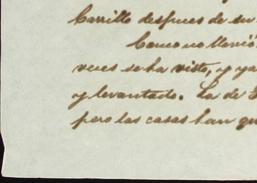 Carrillo despues de su
Como no llovió
veces se ha visto, y ya
y levantado. La de
pero las casas han que